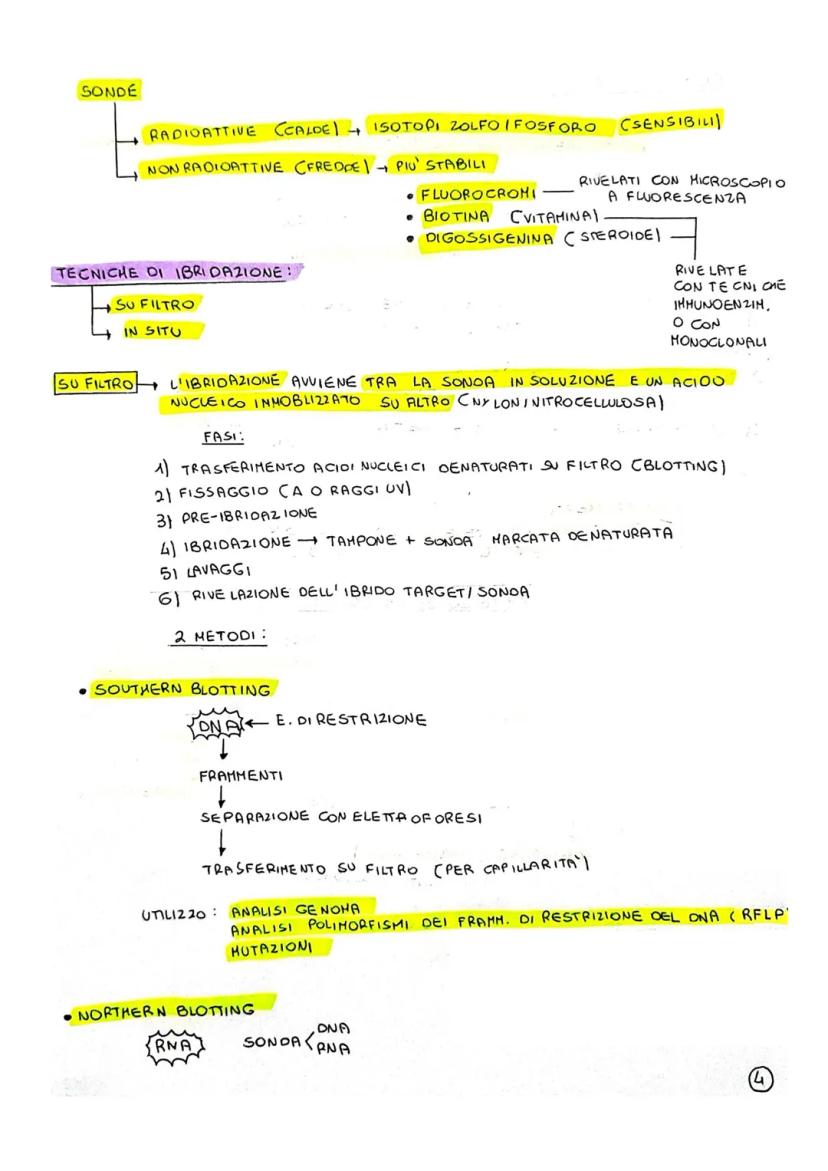 SONDE
RADIOATTIVE (CALDE) → ISOTOPI ZOLFO/FOSFORO (SENSIBILI)
NON RADIOATTIVE (FREDDE) → PIU' STABILI
• FLUOROCROMI — RIVELATI CON MICROSCOPIO
A FLUORESCENZA
• BIOTINA (VITAMINA)
• DIGOSSIGENINA (STEROIDE)
RIVELATE
CON TECNICHE
IMMUNOENZIM.
O CON
MONOCLONALI
TECNICHE DI IBRIDAZIONE:
SU FILTRO
IN SITU
SU FILTRO → L'IBRIDAZIONE AVVIENE TRA LA SONDA IN SOLUZIONE E UN ACIDO
NUCLEICO IMMOBLIZZATO SU FILTRO (NYLON/NITROCELLULOSA)
FASI:
1) TRASFERIMENTO ACIDI NUCLEICI DENATURATI SU FILTRO (BLOTTING)
2) FISSAGGIO (A O RAGGI UV)
3) PRE-IBRIDAZIONE
4) IBRIDAZIONE → TAMPONE + SONDA MARCATA DENATURATA
5) LAVAGGI
6) RIVELAZIONE DELL'IBRIDO TARGET/SONDA
2 METODI:
• SOUTHERN BLOTTING
DNA ← E. DI RESTRIZIONE
↓
FRAMMENTI
↓
SEPARAZIONE CON ELETTROFORESI
↓
TRASFERIMENTO SU FILTRO (PER CAPILLARITA')
UTILIZZO: ANALISI GENOMA
ANALISI POLIMORFISMI DEI FRAMM. DI RESTRIZIONE DEL DNA (RFLP
MUTAZIONI
• NORTHERN BLOTTING
RNA SONDA < DNA
RNA
4